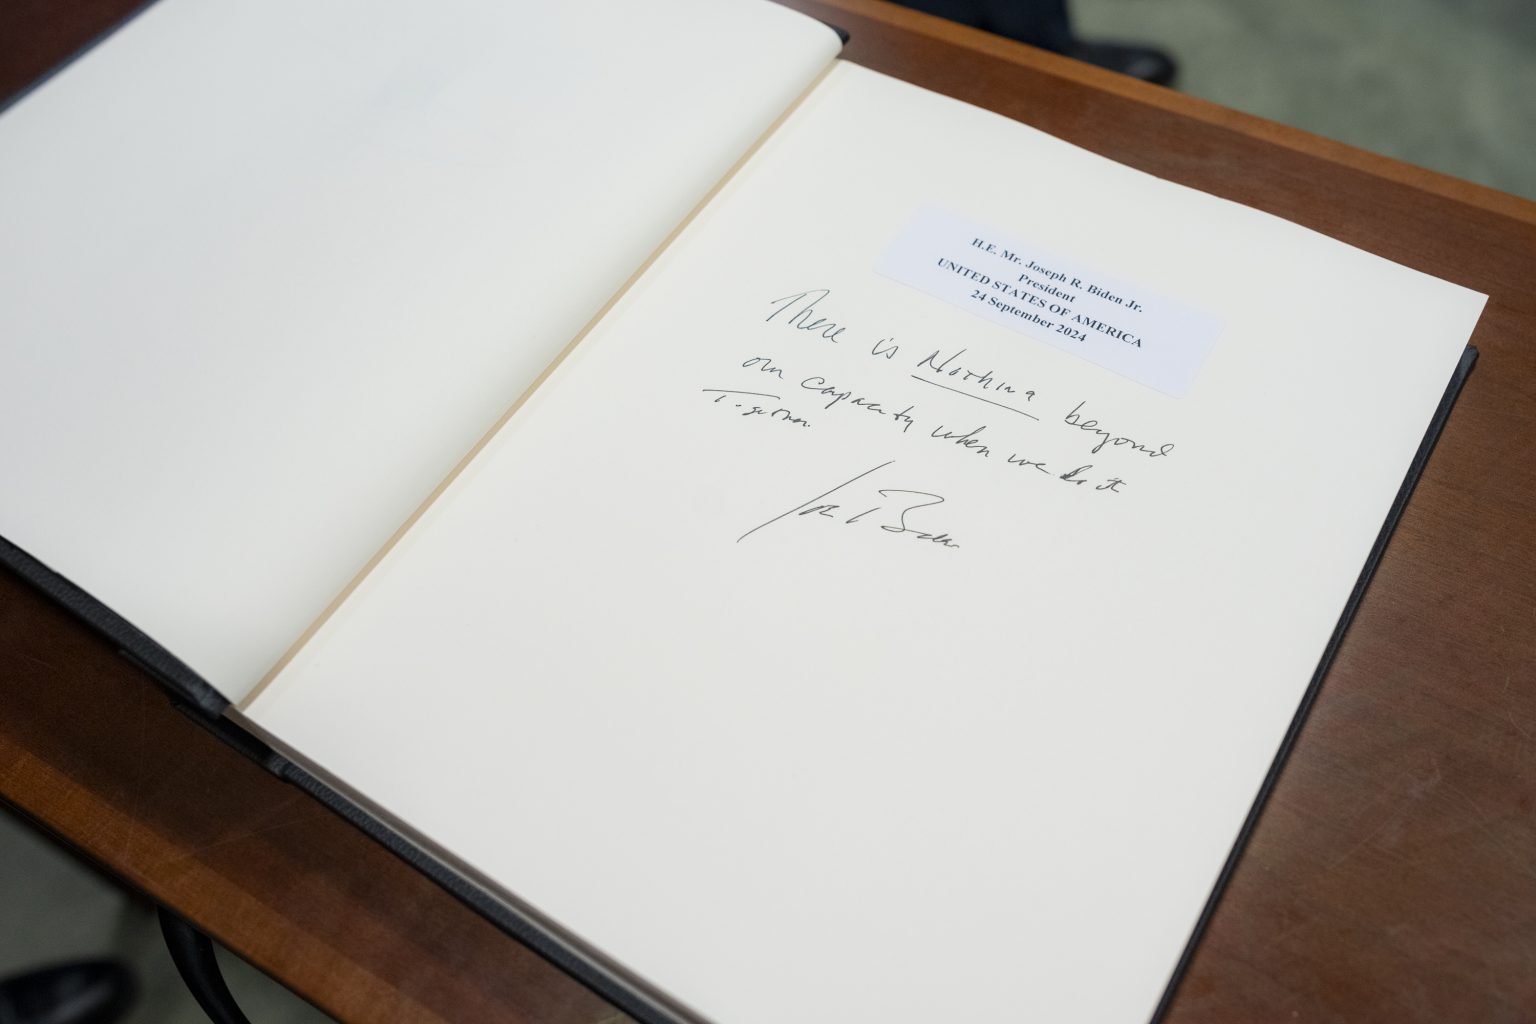 H.E. Mr. Joseph R. Biden Jr.
President
UNITED STATES OF AMERICA
24 September 2024
There is Nothing beyond
our capacity when we do it
Together.
Joe Biden